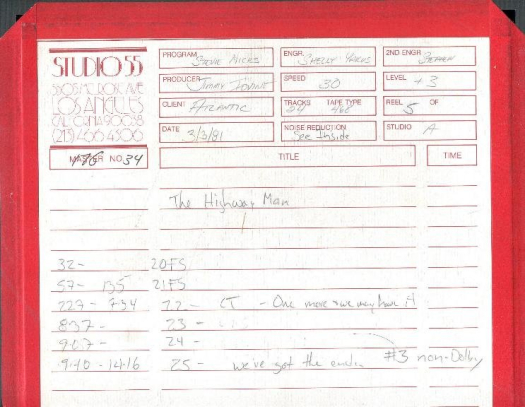 STUDIO 55
5505 MELROSE AVE
LOS ANGELES
CALIFORNIA 90038
(213) 466-4306
PROGRAM Stevie Nicks
ENGR. Shelly Yakus
2ND ENGR
PRODUCER Jimmy Iovine
SPEED 30
LEVEL +3
CLIENT Atlantic
TRACKS 24 TAPE TYPE
REEL 5 OF
DATE 3/3/81
NOISE REDUCTION See Inside
STUDIO A
MASTER NO. 34
TITLE
TIME
The Highway Man
32- 20FS
57- 135 21FS
227- 734 22- CT - One more + we may have it
837- 23 -
907- 24 -
940 - 1416 25 - we've got the
#3 non-Dolby